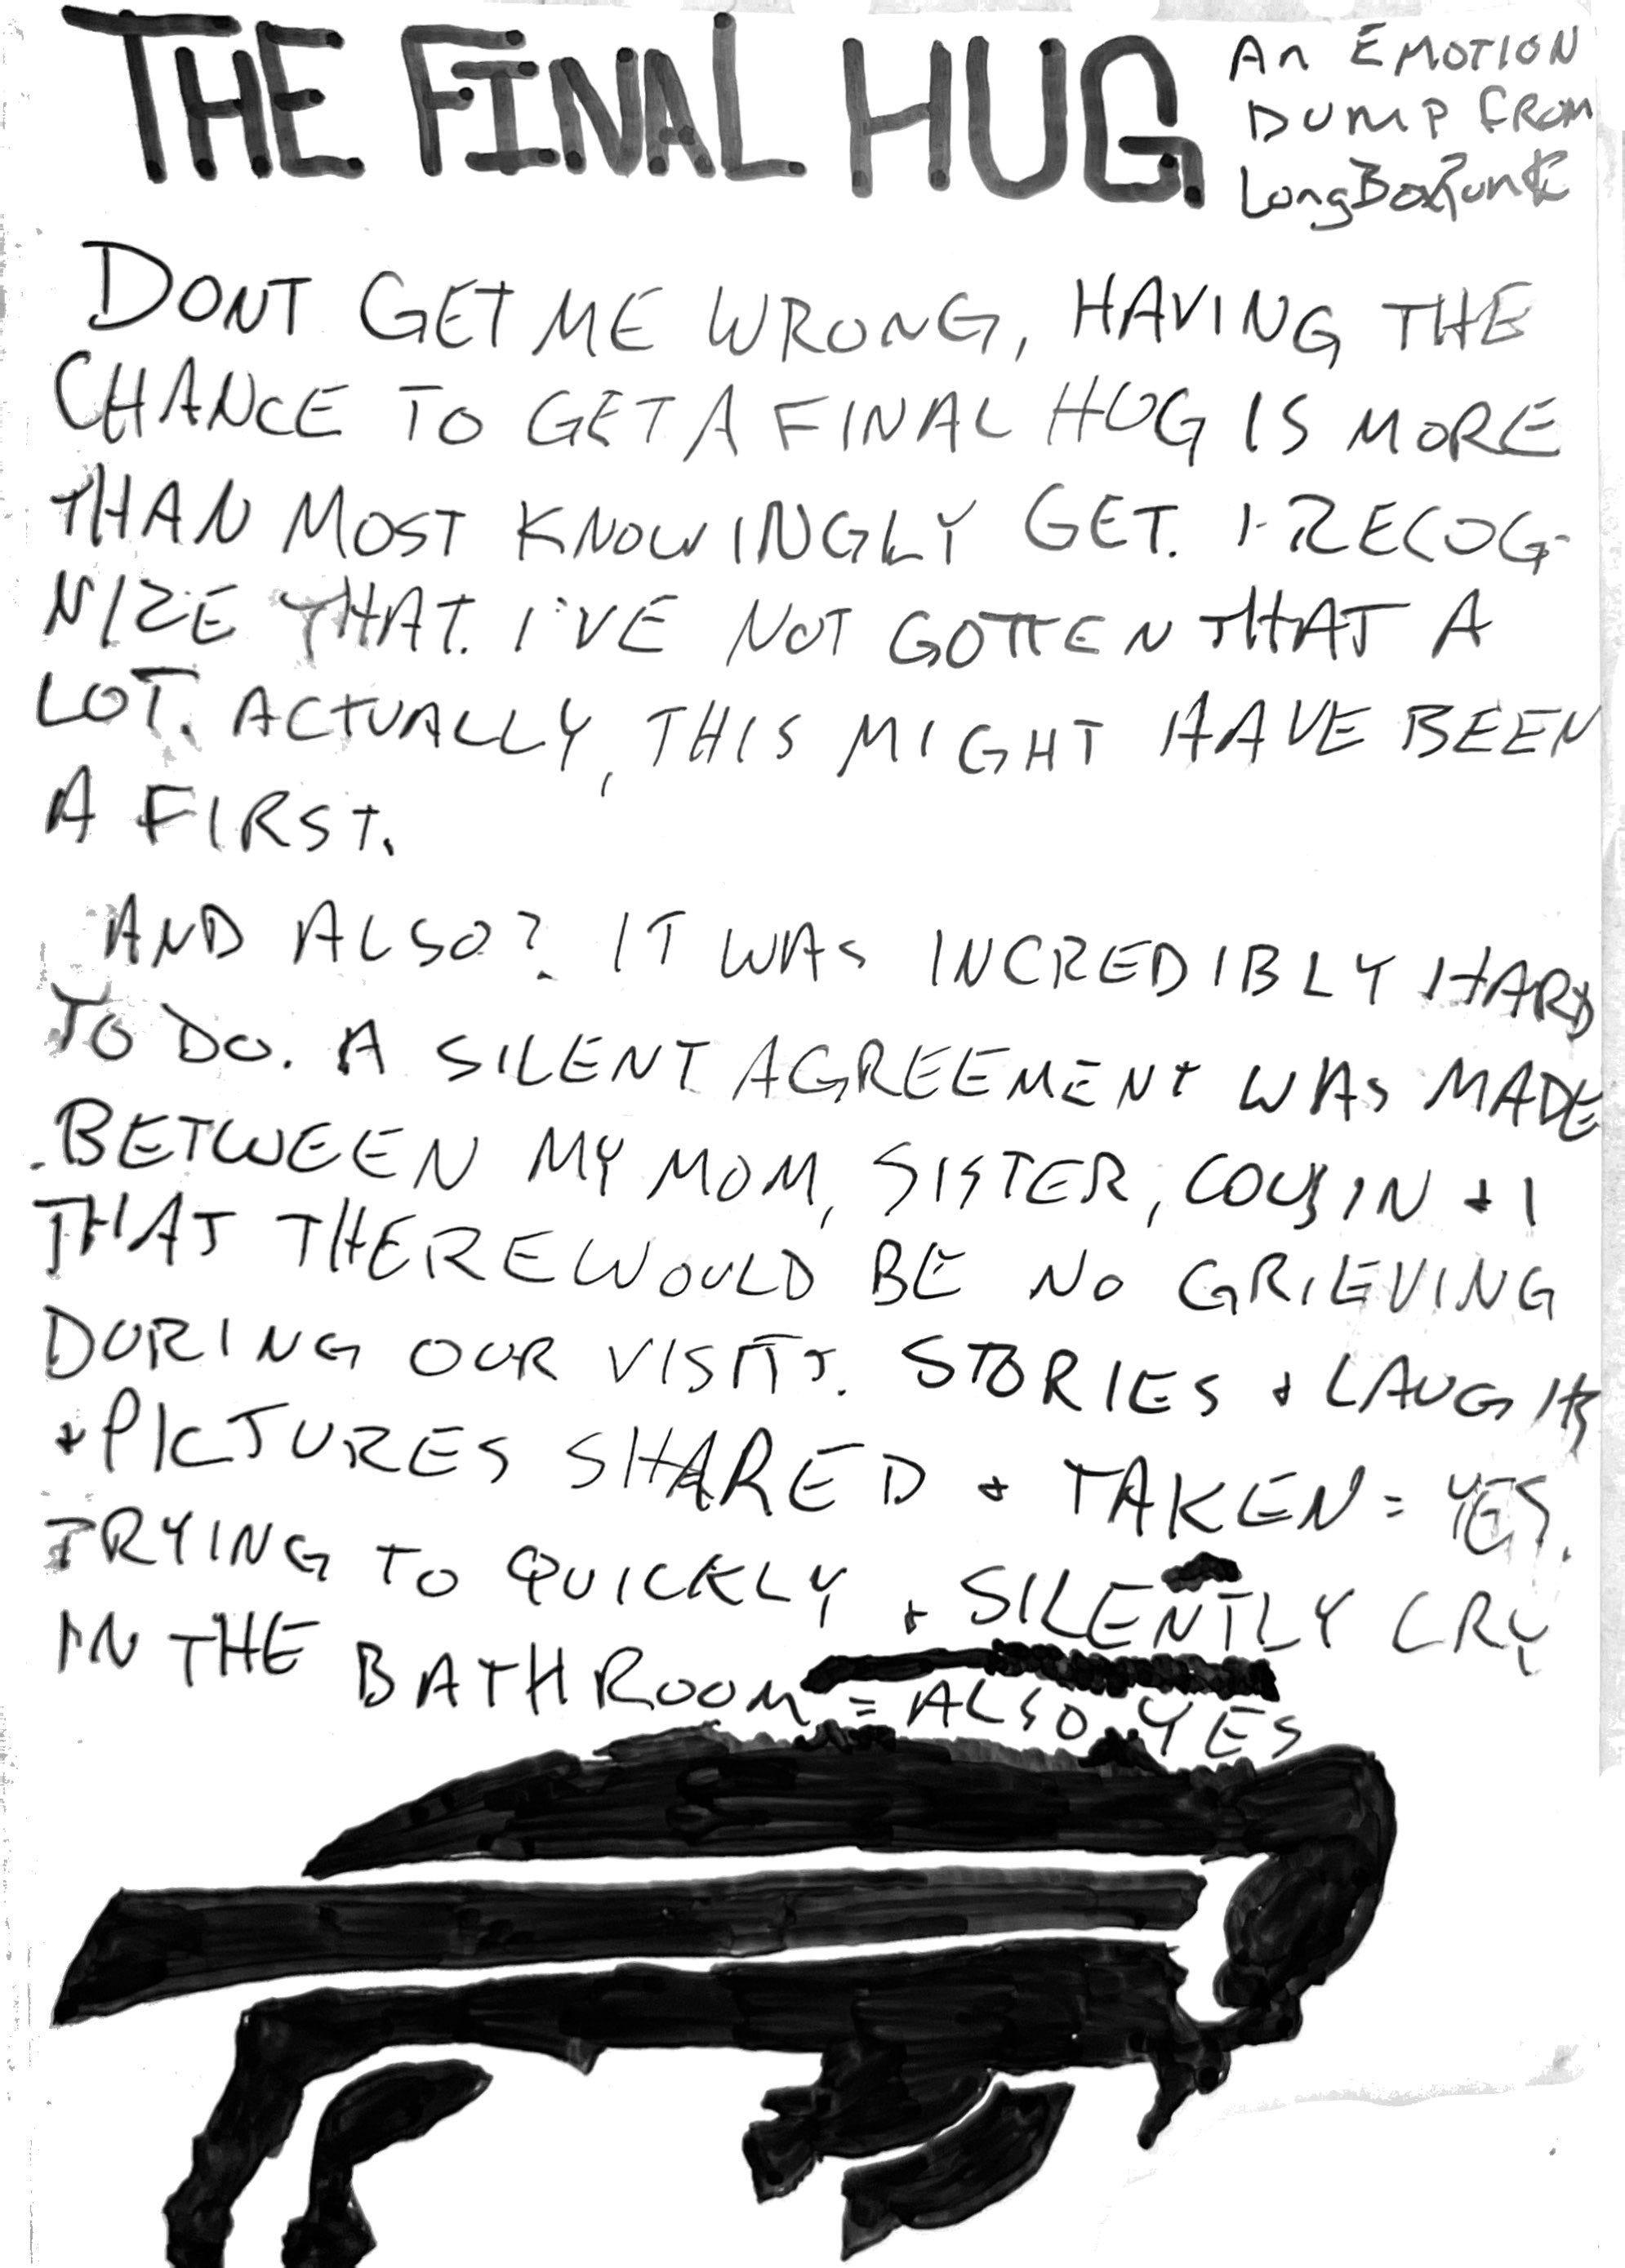 THE FINAL HUG
An EMOTION
DUMP FROM
LongBoxPunk
DONT GET ME WRONG, HAVING THE
CHANCE TO GET A FINAL HUG IS MORE
THAN MOST KNOWINGLY GET. I RECOG-
NIZE THAT. I'VE NOT GOTTEN THAT A
LOT. ACTUALLY, THIS MIGHT HAVE BEEN
A FIRST.
AND ALSO? IT WAS INCREDIBLY HARD
TO DO. A SILENT AGREEMENT WAS MADE
BETWEEN MY MOM, SISTER, COUSIN + I
THAT THERE WOULD BE NO GRIEVING
DURING OUR VISITS. STORIES + LAUGHS
+ PICTURES SHARED + TAKEN = YES.
TRYING TO QUICKLY + SILENTLY CRY
IN THE BATHROOM = ALSO YES